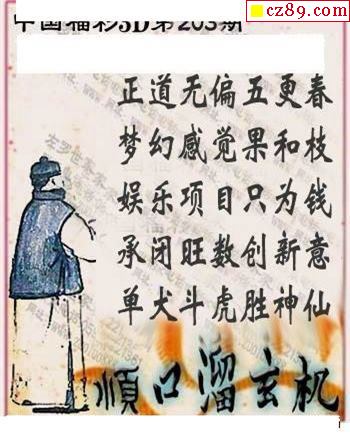 cz89.com
中国福彩3D第203期
正道无偏五更春
梦幻感觉果和枝
娱乐项目只为钱
承闭旺数创新意
单犬斗虎胜神仙
順口溜玄机